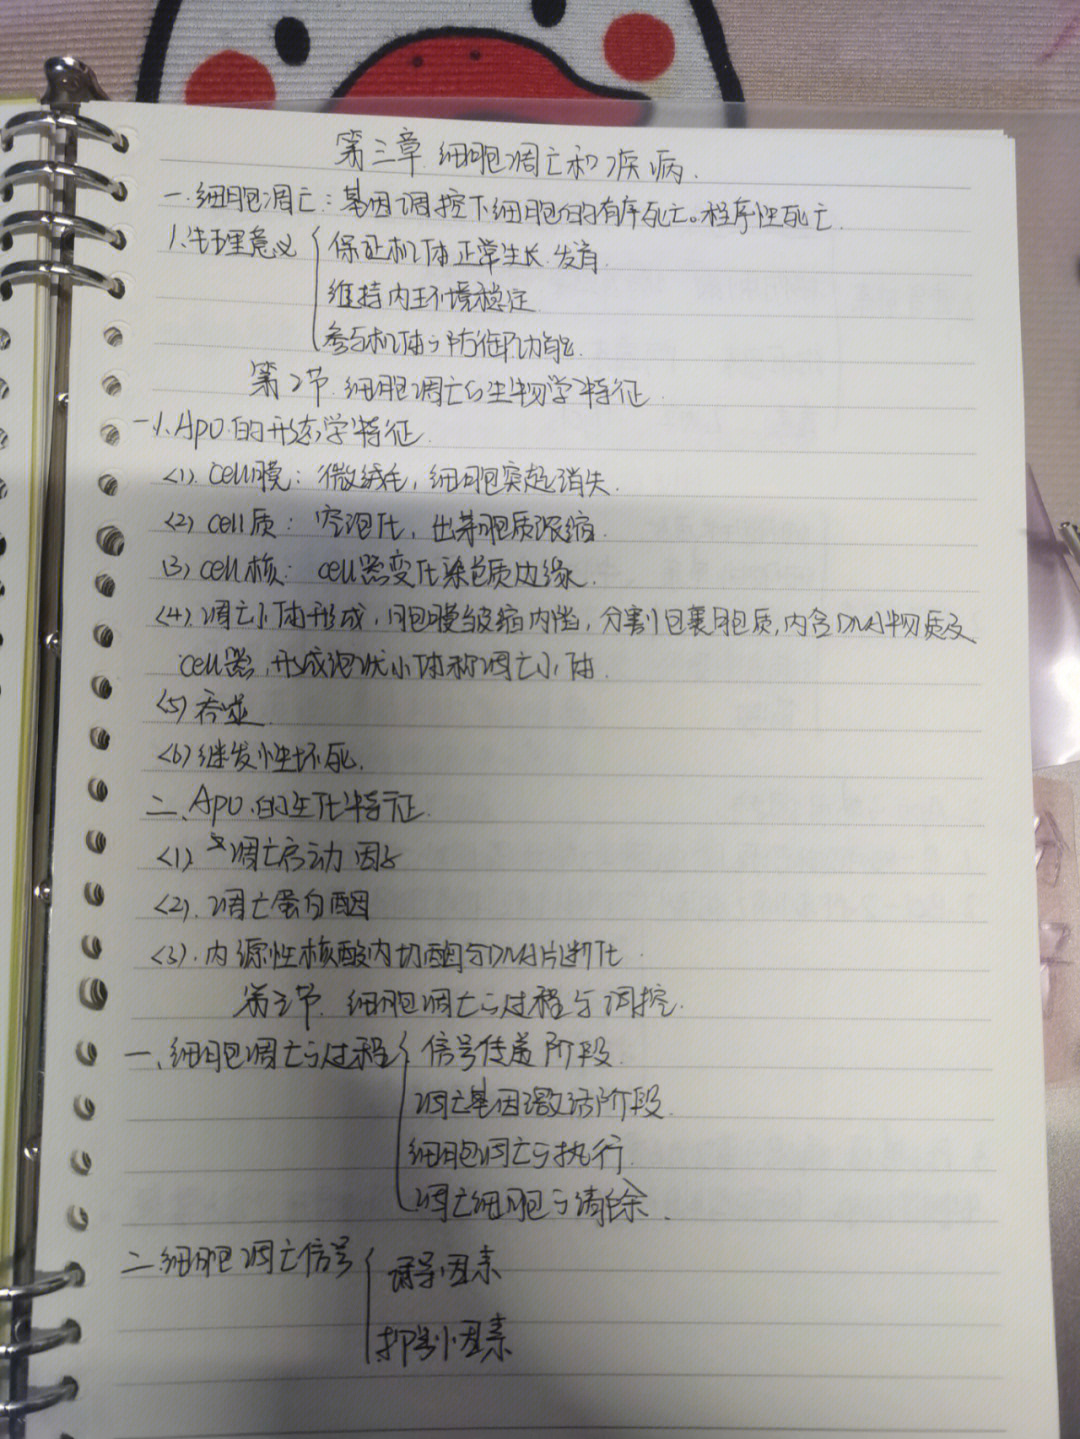 第三章.细胞凋亡和疾病.
一.细胞凋亡:基因调控下细胞的有序死亡。程序性死亡.
1.生理意义 保证机体正常生长.发育.
维持内环境稳定
参与机体的防御功能.
第2节.细胞凋亡的生物学特征.
一1.Apo.的形态学特征.
<1>.cell膜:微绒毛,细胞突起消失.
<2>cell质:空泡化,出芽胞质浓缩.
(3)cell核:cell器变化染色质边缘.
<4>.凋亡小体形成,胞膜皱缩内陷,分割包裹胞质,内含DNA物质及
cell器,形成泡状小体称凋亡小体.
<5>吞噬.
<6>继发性坏死.
二、Apo.的生化特征.
<1>凋亡启动因子
<2>.凋亡蛋白酶
<3>.内源性核酸内切酶与DNA片断化.
第三节.细胞凋亡的过程与调控.
一、细胞凋亡的过程 信号传递阶段.
凋亡基因激活阶段.
细胞凋亡的执行.
凋亡细胞的清除.
二.细胞凋亡信号 诱导因素
抑制因素